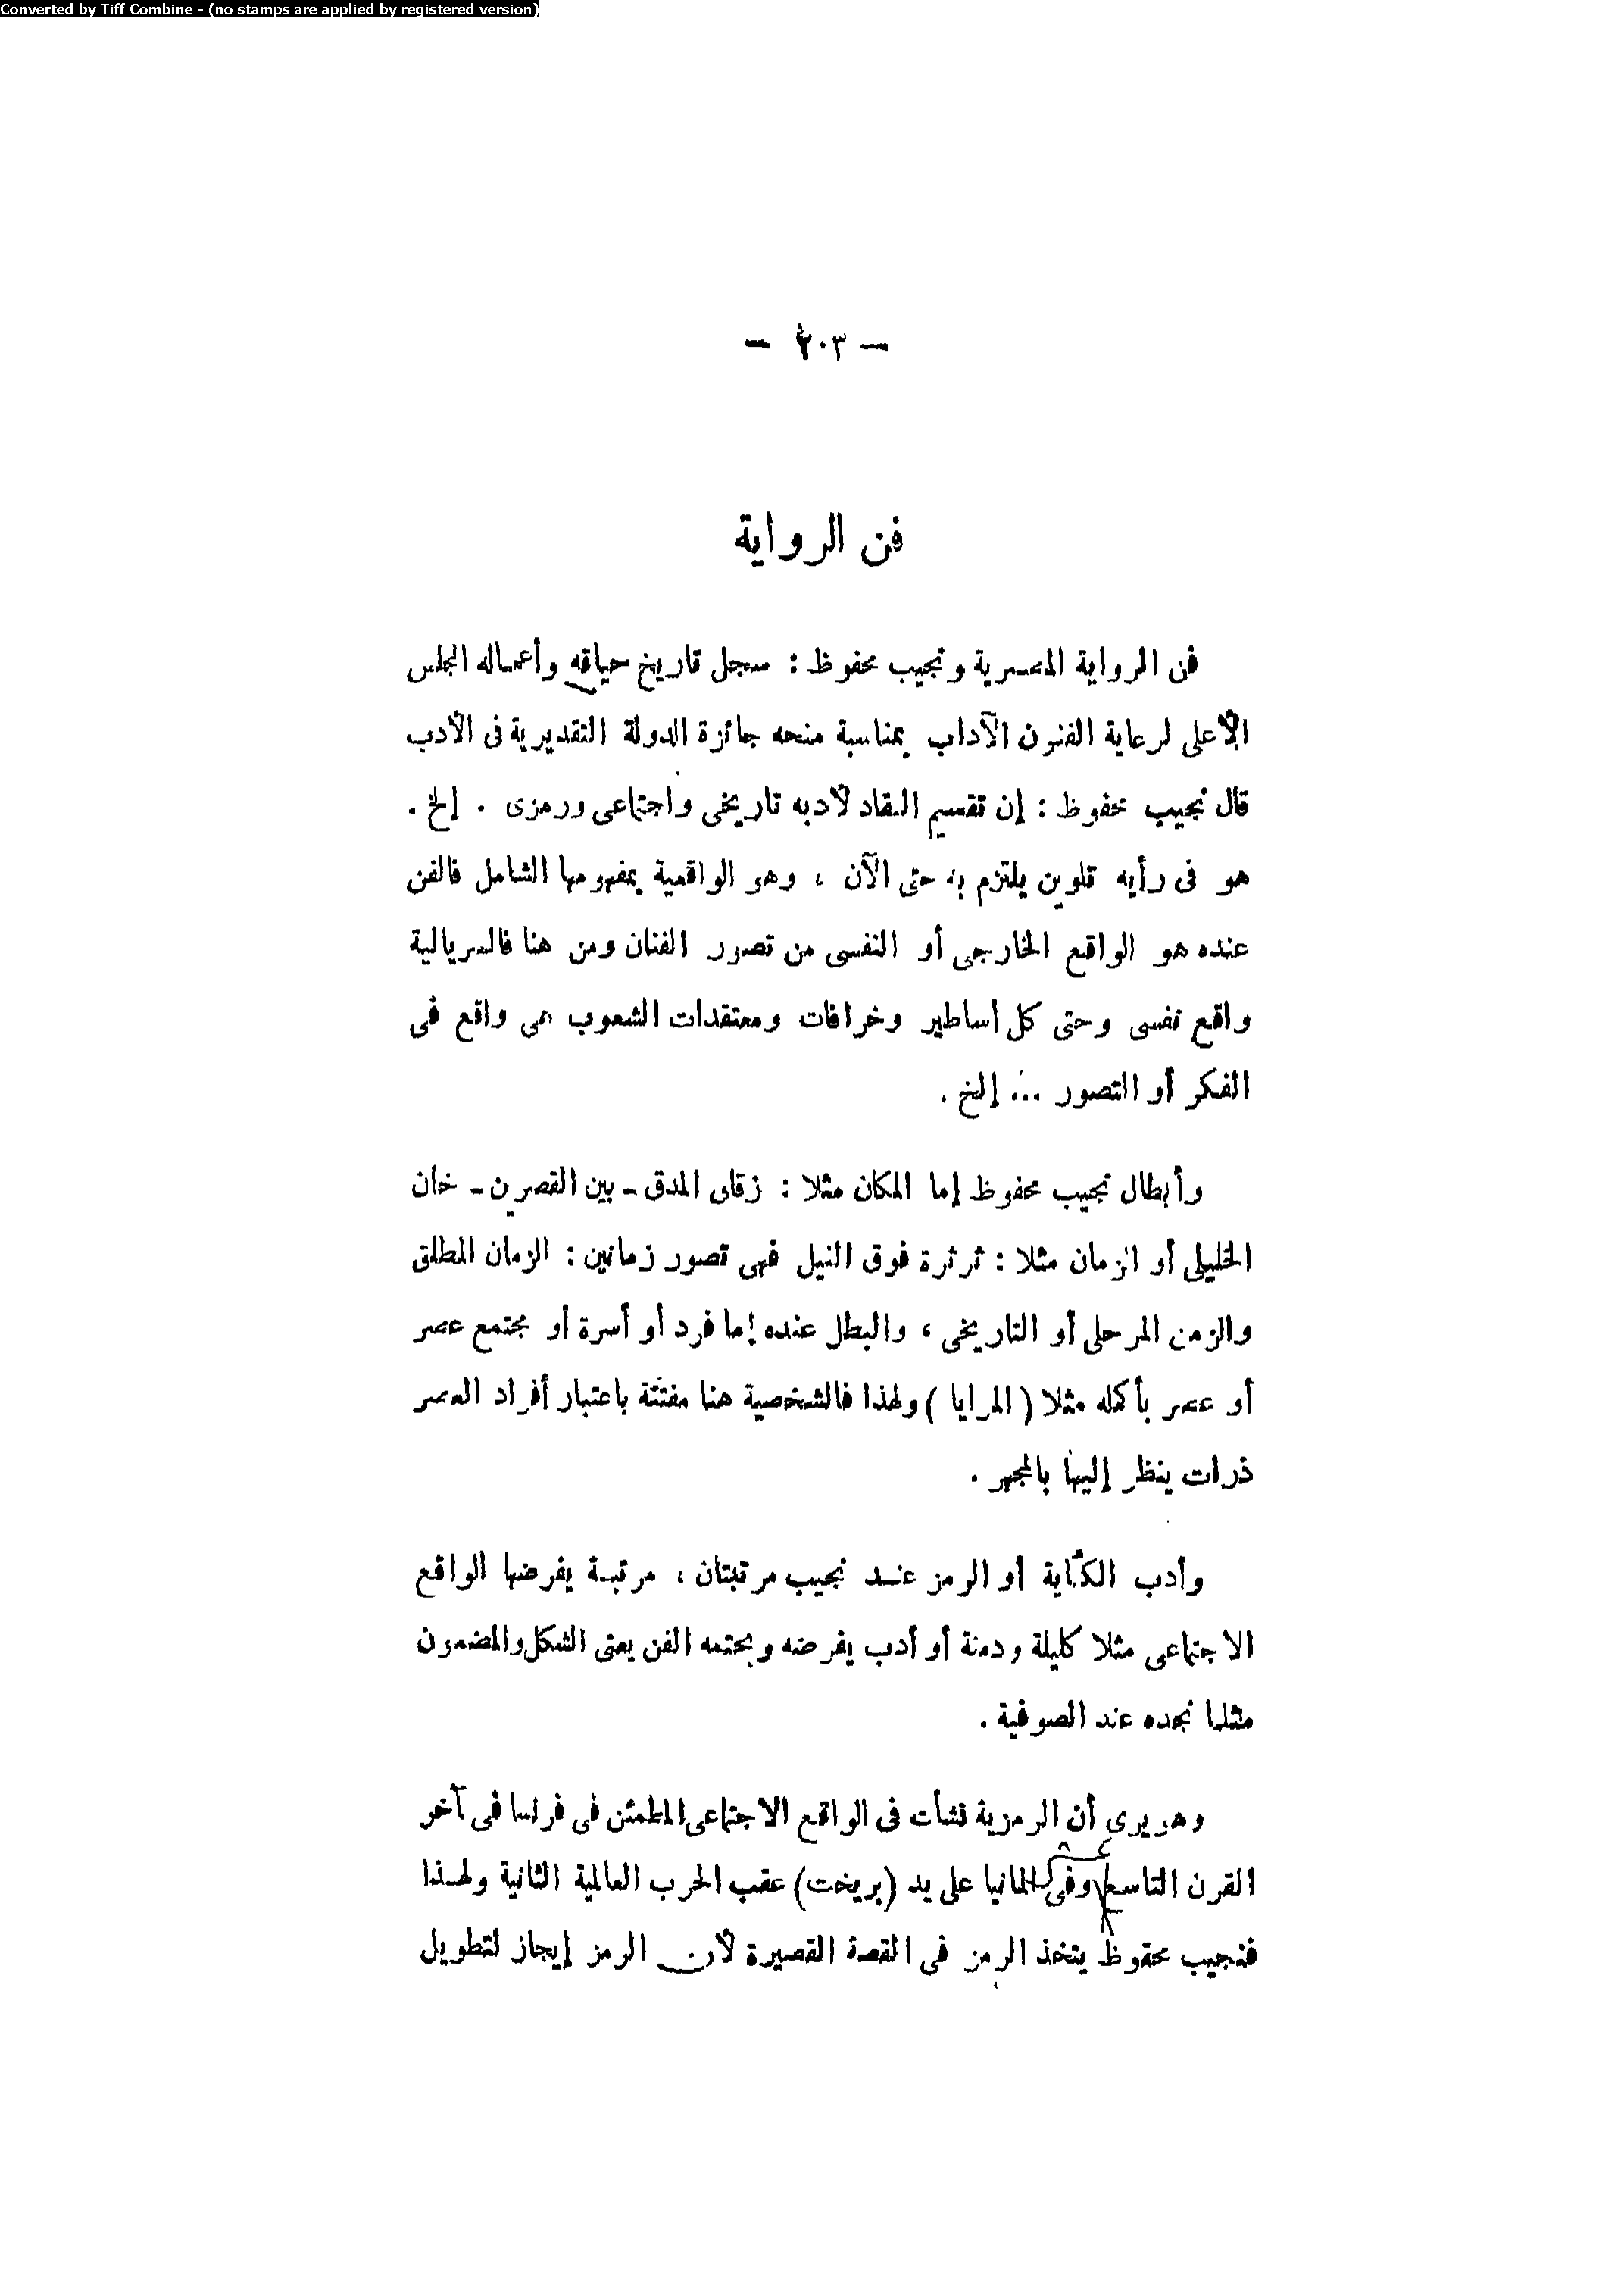 Converted by Tiff Combine - (no stamps are applied by registered version)
— ٢٠٣ —
فن الرواية
فن الرواية المصرية ونجيب محفوظ : سجل تاريخ حياته وأعماله المجلس
الأعلى لرعاية الفنون الآداب بمناسبة منحه جائزة الدولة التقديرية فى الأدب
قال نجيب محفوظ : إن تقسيم النقاد لأدبه تاريخى واجتماعى ورمزى . إلخ .
هو فى رأيه تلوين يلتزم به حتى الآن ، وهو الواقعية بمفهومها الشامل فالفن
عنده هو الواقع الخارجى أو النفسى من تصور الفنان ومن هنا فالسريالية
واقع نفسى وحتى كل أساطير وخرافات ومعتقدات الشعوب هى واقع فى
الفكر أو التصور ... إلخ .
وأبطال نجيب محفوظ إما المكان مثلا : زقاق المدق - بين القصرين - خان
الخليلى أو الزمان مثلا : ثرثرة فوق النيل فهى تصور زمانين : الزمان المطلق
والزمن المرحلى أو التاريخى ، والبطل عنده إما فرد أو أسرة أو مجتمع عصر
أو عصر بأكمله مثلا ( المرايا ) ولهذا فالشخصية هنا مفتتة باعتبار أفراد العصر
ذرات ينظر إليها بالمجهر .
وأدب الكناية أو الرمز عند نجيب مرتبتان ، مرتبة يفرضها الواقع
الاجتماعى مثلا كليلة ودمنة أو أدب يفرضه ويحتمه الفن يعنى الشكل والمضمون
مثلما نجده عند الصوفية .
وهو يرى أن الرمزية نشأت فى الواقع الاجتماعى المطمئن فى فرنسا فى آخر
القرن التاسع وفى المانيا على يد (بريخت) عقب الحرب العالمية الثانية ولهذا
فنجيب محفوظ يتخذ الرمز فى القصة القصيرة لأن الرمز إيجاز لتطويل